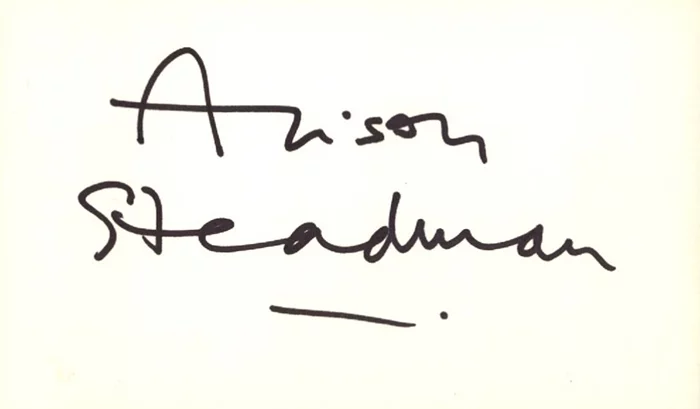 Alison
Steadman